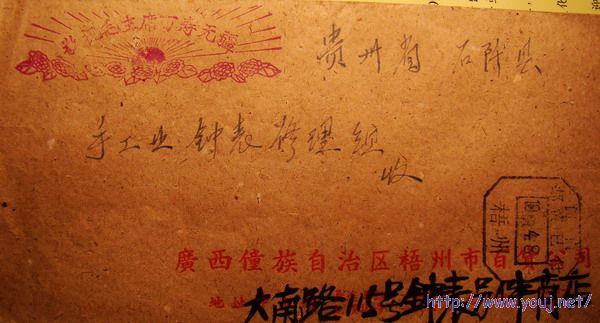 敬祝毛主席万寿无疆
贵州省 石阡县
手工业 钟表修理组
收
梧州
廣西僮族自治区梧州市百货公司
地址
大南路115号钟表另件商店
http://www.youj.net/